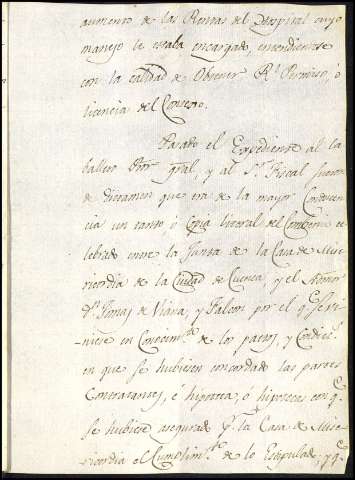 aumento de las Rentas del Hospital cuyo
manejo le estaba encargado, entendiendose
con la calidad de Obtener Rl. Permiso, ó
licencia del Consejo.
Pasado el Expediente al Ca
ballero Ptor gral, y al Sr. Fiscal fueron
de dictamen que era de la mayor Conducen
cia un tanto ó Copia literal del Convenio ce
lebrado entre la Junta de la Casa de Mise
ricordia de la Ciudad de Cuenca, y el
Dn. Tomas de Viana, y Falcon por el qe. se vi-
niese en Conocimto. de los pactos, y Condics.
en que se hubiesen concordado las partes
Contratantes, é hipoteca, ó hipotecas con qe.
se hubiese asegurado pr. la Casa de Mise
ricordia el Cumplimto. de lo Estipulado, y qe.